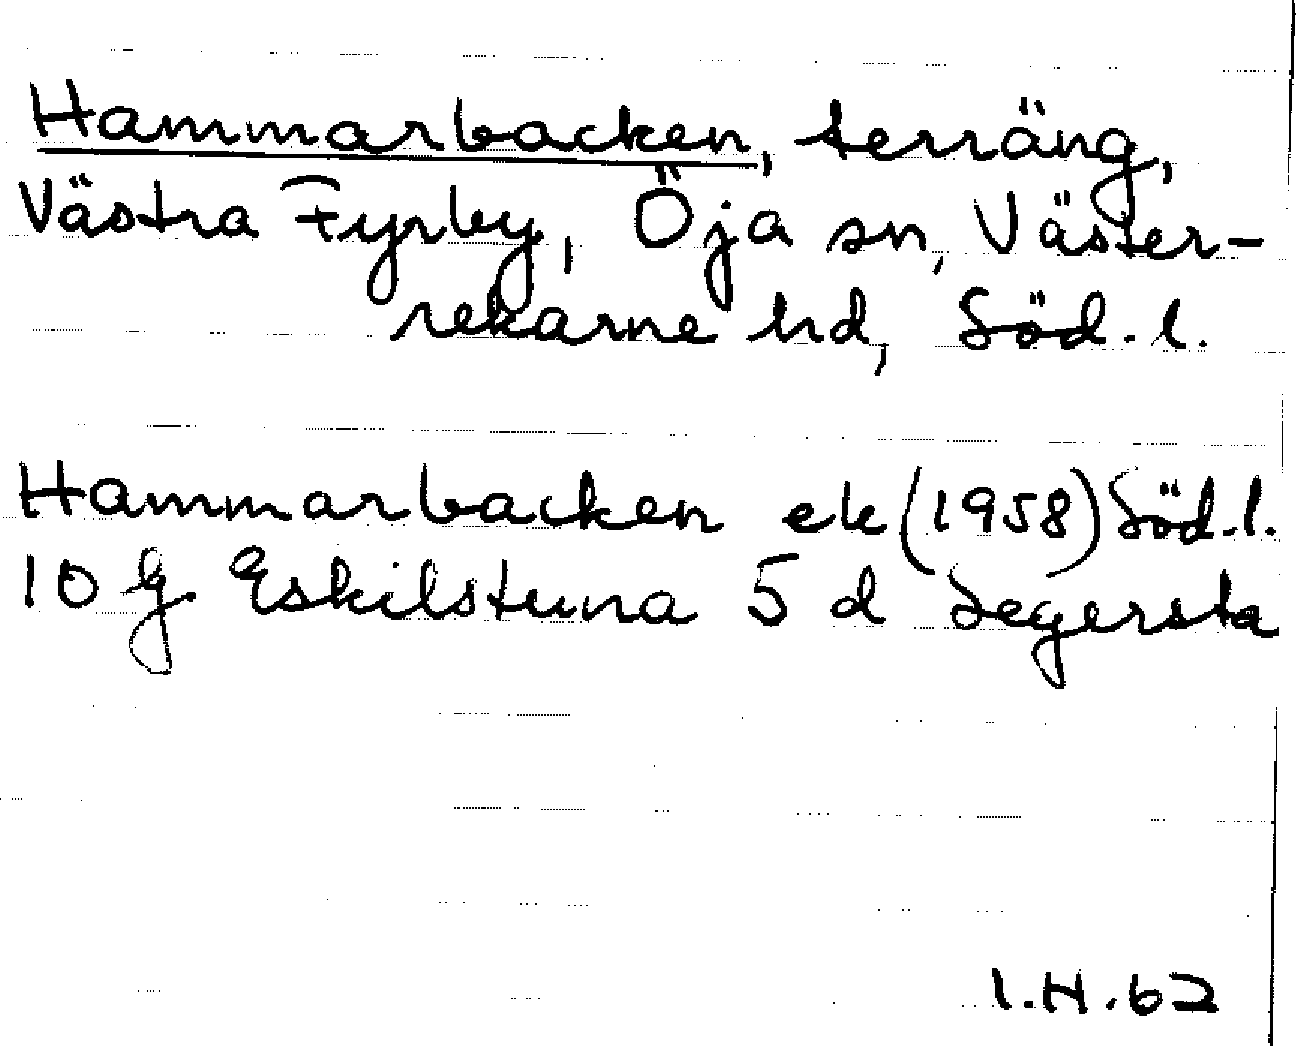 Hammarbacken, terräng,
Västra Fyrby, Öja sn, Väster-
rekarne hd, Söd. l.
Hammarbacken ek (1958) Söd. l.
10 g Eskilstuna 5 d Segersta
I.H.62